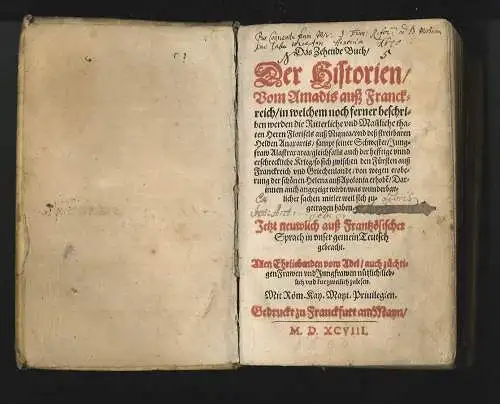 Das Zehende Buch/
Der Historien/
Vom Amadis auß Franck-
reich/in welchem noch ferner beschri-
ben werden die Ritterliche vnd Mañliche tha-
ten Herrn Florisels auß Niquea/vnd deß streitbaren
Helden Anaxartis/sampt seiner Schwester/Jung-
fraw Alastraxarea/gleichfalls auch der hefftige vnnd
erschreckliche Krieg/so sich zwischen den Fürsten auß
Franckreich vnd Griechenlandt/von wegen erobe-
rung der schönen Helena auß Apolonia erhobē/Dar-
innen auch angezeigt wirdt/was wunderbar-
licher sachen mitler weil sich zu-
getragen haben
Jetzt neuwlich auß Frantzösischer
Sprach in vnser gemein Teutsch
gebracht.
Allen Ehrliebenden vom Adel/auch züchti-
gen Frawen vnd Jungfrawen nützlich/lieb-
lich vnd kurtzweilich zulesen.
Mit Röm. Kay. Mayt. Priuilegien.
Gedruckt zu Franckfurt am Mayn/
M. D. XCVIII.